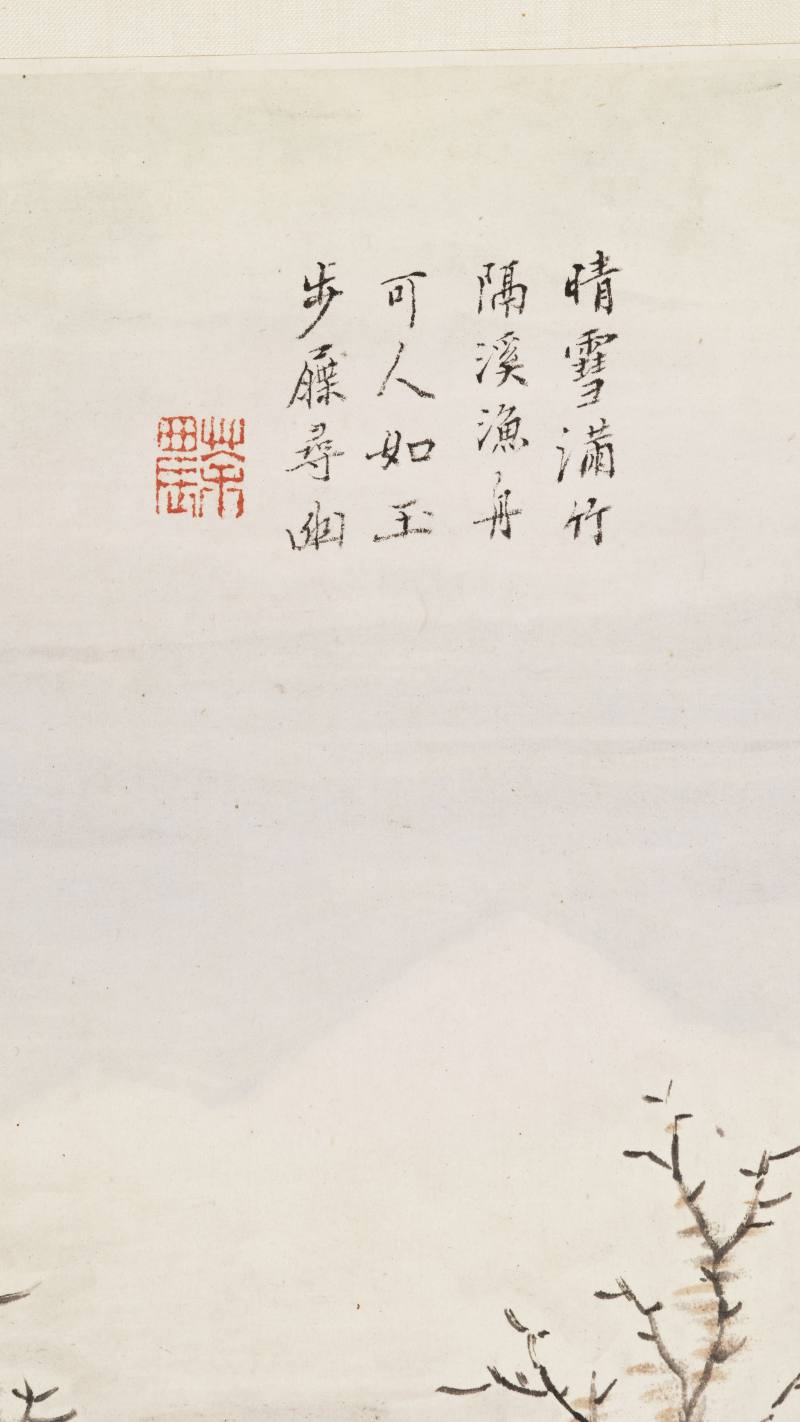 晴雪滿竹
隔溪漁舟
可人如玉
步屧尋幽
茶農